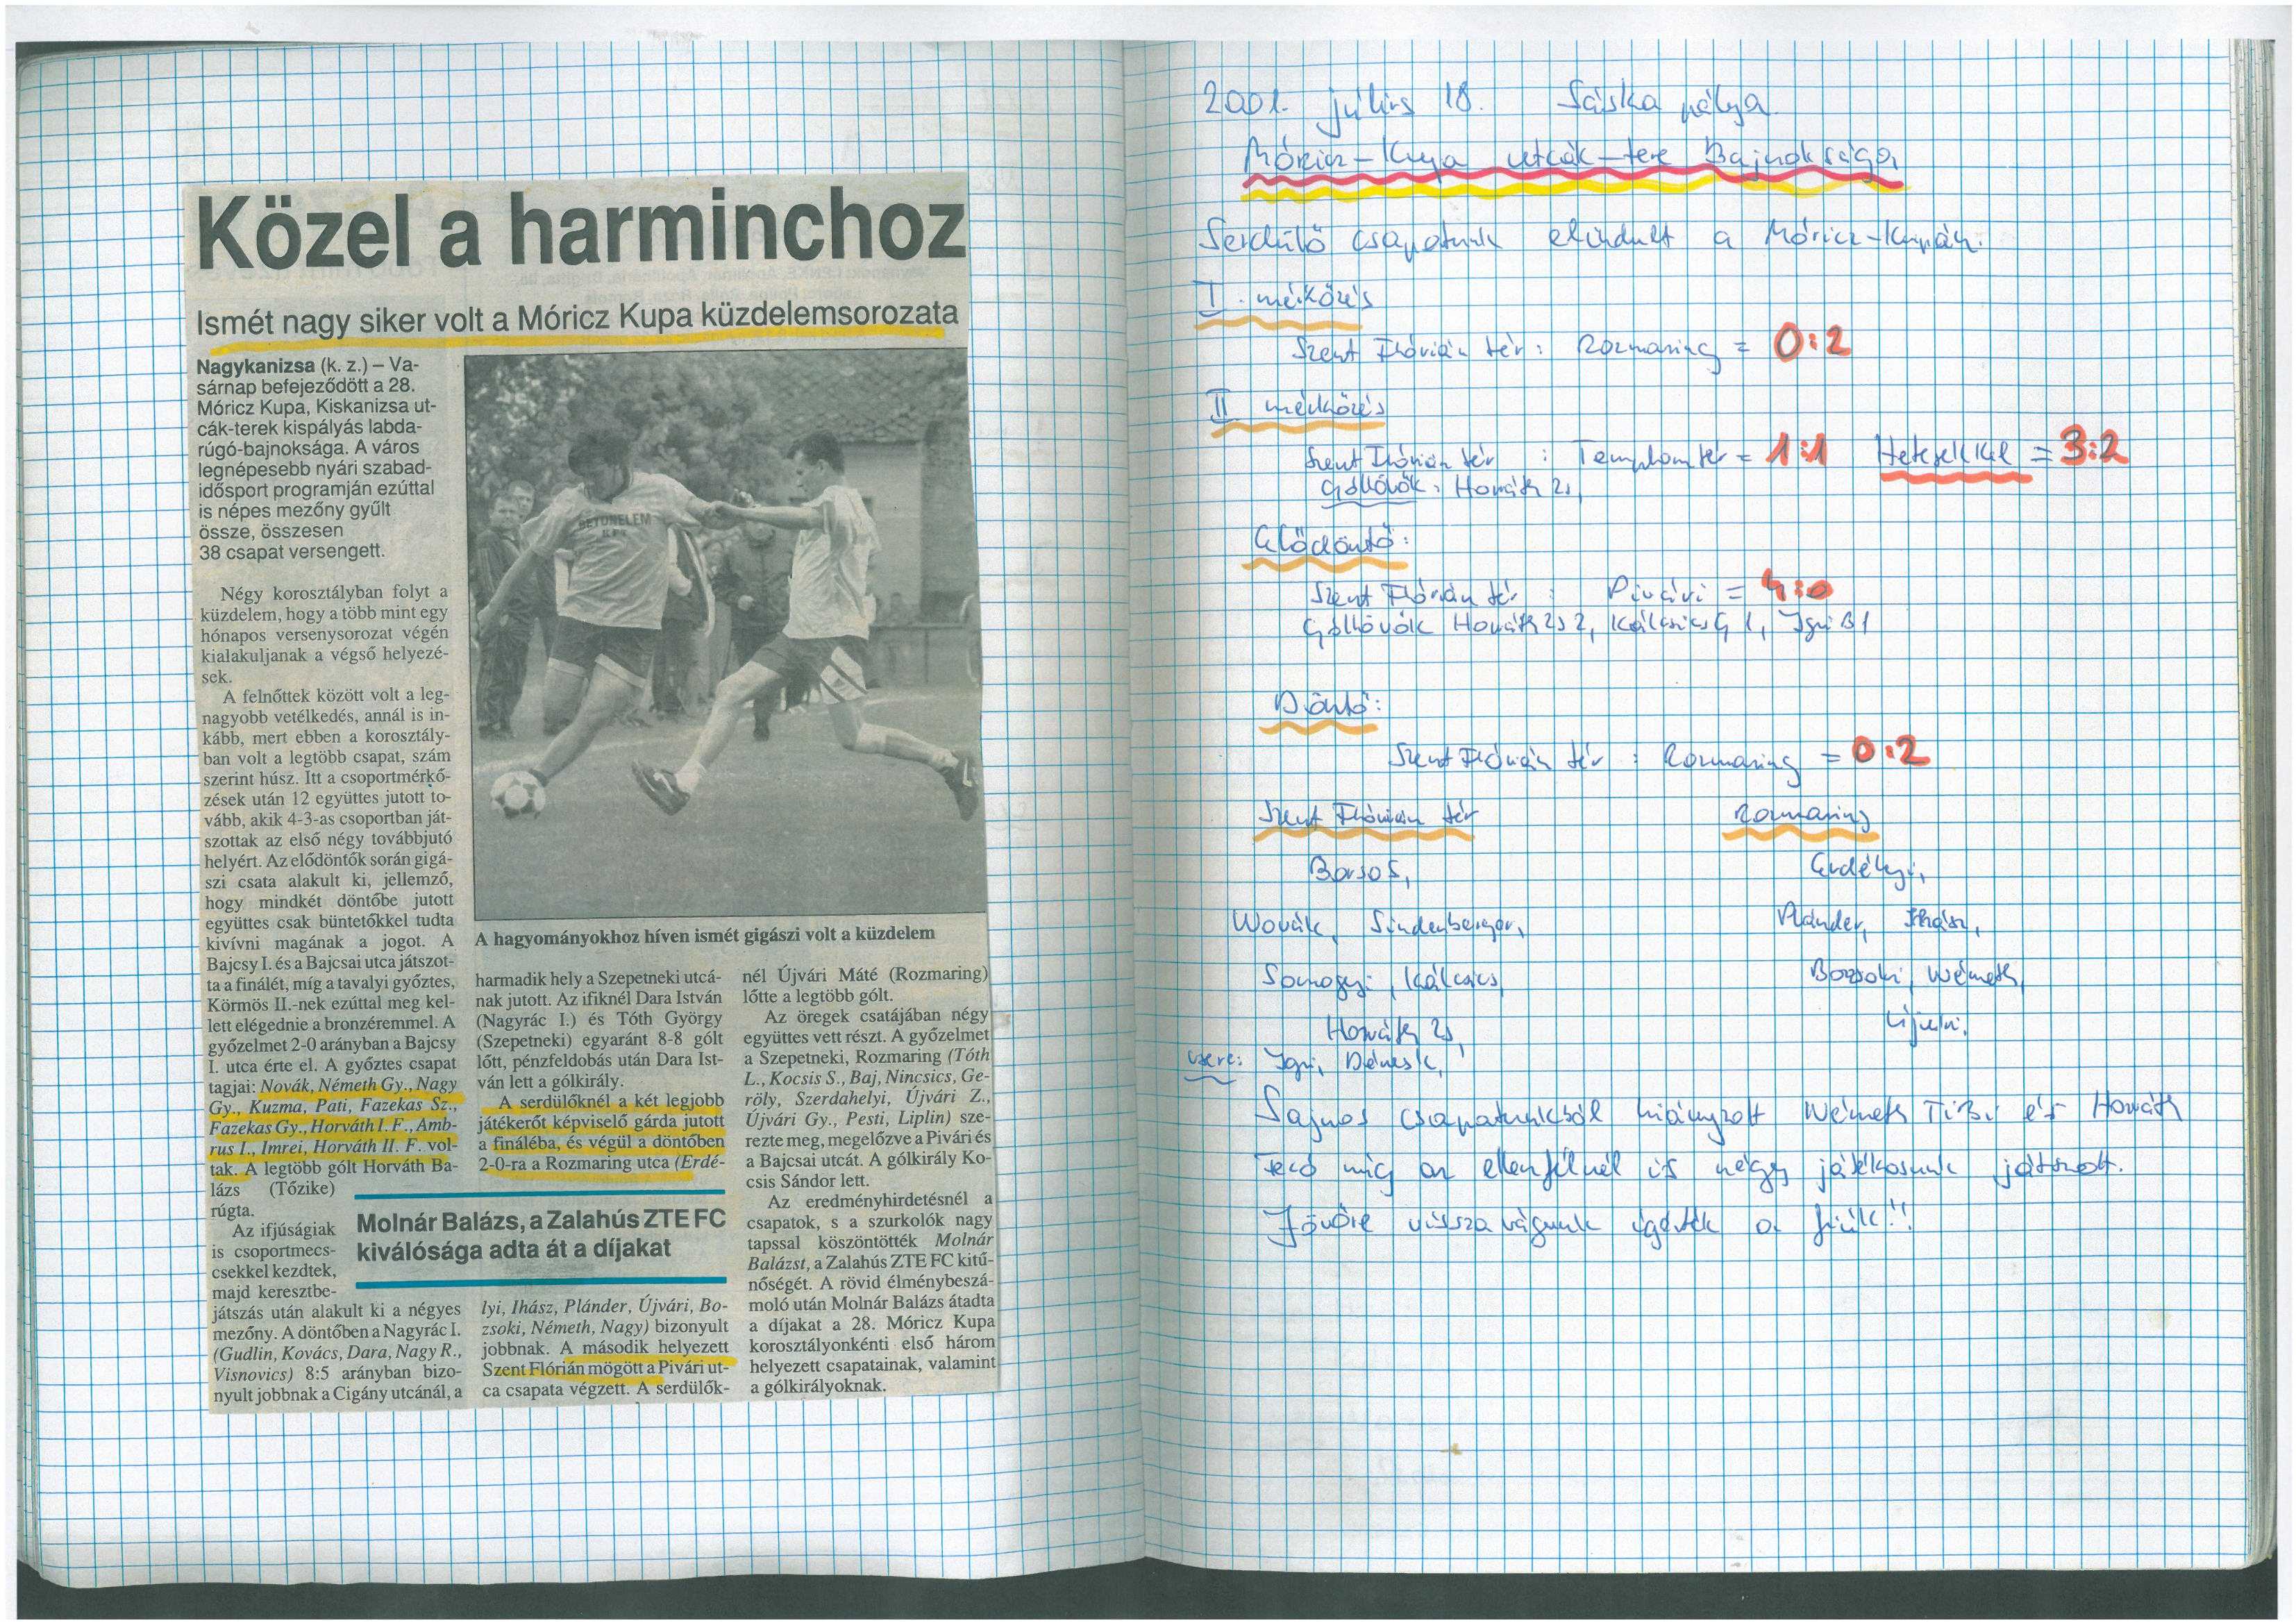 Közel a harminchoz
Ismét nagy siker volt a Móricz Kupa küzdelemsorozata
Nagykanizsa (k. z.) – Va-
sárnap befejeződött a 28.
Móricz Kupa, Kiskanizsa ut-
cák-terek kispályás labda-
rúgó-bajnoksága. A város
legnépesebb nyári szabad-
idősport programján ezúttal
is népes mezőny gyűlt
össze, összesen
38 csapat versengett.
Négy korosztályban folyt a
küzdelem, hogy a több mint egy
hónapos versenysorozat végén
kialakuljanak a végső helyezé-
sek.
A felnőttek között volt a leg-
nagyobb vetélkedés, annál is in-
kább, mert ebben a korosztály-
ban volt a legtöbb csapat, szám
szerint húsz. Itt a csoportmérkő-
zések után 12 együttes jutott to-
vább, akik 4-3-as csoportban ját-
szottak az első négy továbbjutó
helyért. Az elődöntők során gigá-
szi csata alakult ki, jellemző,
hogy mindkét döntőbe jutott
együttes csak büntetőkkel tudta
kivívni magának a jogot. A
Bajcsy I. és a Bajcsai utca játszot-
ta a finálét, míg a tavalyi győztes,
Körmös II.-nek ezúttal meg kel-
lett elégednie a bronzéremmel. A
győzelmet 2-0 arányban a Bajcsy
I. utca érte el. A győztes csapat
tagjai: Novák, Németh Gy., Nagy
Gy., Kuzma, Pati, Fazekas Sz.,
Fazekas Gy., Horváth I. F., Amb-
rus I., Imrei, Horváth II. F. vol-
tak. A legtöbb gólt Horváth Ba-
lázs (Tőzike)
rúgta.
Az ifjúságiak
is csoportmecs-
csekkel kezdtek,
majd keresztbe-
játszás után alakult ki a négyes
mezőny. A döntőben a Nagyrác I.
(Gudlin, Kovács, Dara, Nagy R.,
Visnovics) 8:5 arányban bizo-
nyult jobbnak a Cigány utcánál, a
A hagyományokhoz híven ismét gigászi volt a küzdelem
harmadik hely a Szepetneki utcá-
nak jutott. Az ifiknél Dara István
(Nagyrác I.) és Tóth György
(Szepetneki) egyaránt 8-8 gólt
lőtt, pénzfeldobás után Dara Ist-
ván lett a gólkirály.
A serdülőknél a két legjobb
játékerőt képviselő gárda jutott
a fináléba, és végül a döntőben
2-0-ra a Rozmaring utca (Erdé-
Molnár Balázs, a Zalahús ZTE FC
kiválósága adta át a díjakat
lyi, Ihász, Plánder, Újvári, Bo-
zsoki, Németh, Nagy) bizonyult
jobbnak. A második helyezett
Szent Flórián mögött a Pivári ut-
ca csapata végzett. A serdülők-
nél Újvári Máté (Rozmaring)
lőtte a legtöbb gólt.
Az öregek csatájában négy
együttes vett részt. A győzelmet
a Szepetneki, Rozmaring (Tóth
L., Kocsis S., Baj, Nincsics, Ge-
röly, Szerdahelyi, Újvári Z.,
Újvári Gy., Pesti, Liplin) sze-
rezte meg, megelőzve a Pivári és
a Bajcsai utcát. A gólkirály Ko-
csis Sándor lett.
Az eredményhirdetésnél a
csapatok, s a szurkolók nagy
tapssal köszöntötték Molnár
Balázst, a Zalahús ZTE FC kitű-
nőségét. A rövid élménybeszá-
moló után Molnár Balázs átadta
a díjakat a 28. Móricz Kupa
korosztályonkénti első három
helyezett csapatainak, valamint
a gólkirályoknak.
2001. július 18. Sáska pálya.
Móricz-Kupa utcák-tere Bajnoksága
Serdülő csapatunk elindult a Móricz-Kupán.
I. mérkőzés
Szent Flórián tér : Rozmaring = 0:2
II mérkőzés
Szent Flórián tér : Templom tér = 1:1 Hetesekkel = 3:2
Góllövők: Horváth Zs,
Elődöntő:
Szent Flórián tér : Pivári = 4:0
Góllövők Horváth Zs 2, Kálcsics G 1, Igri B 1
Döntő:
Szent Flórián tér : Rozmaring = 0:2
Szent Flórián tér Rozmaring
Borsos, Erdélyi,
Novák, Lindenberger, Plánder, Ihász,
Somogyi, Kálcsics, Bozsoki, Németh,
Horváth Zs, Újvári.
csere: Igri, Dénes K,
Sajnos csapatunkból hiányzott Németh Tibi és Horváth
Fecó míg az ellenfélnél is négy játékosunk játszott.
Jövőre visszavágunk ígérték a fiúk!!